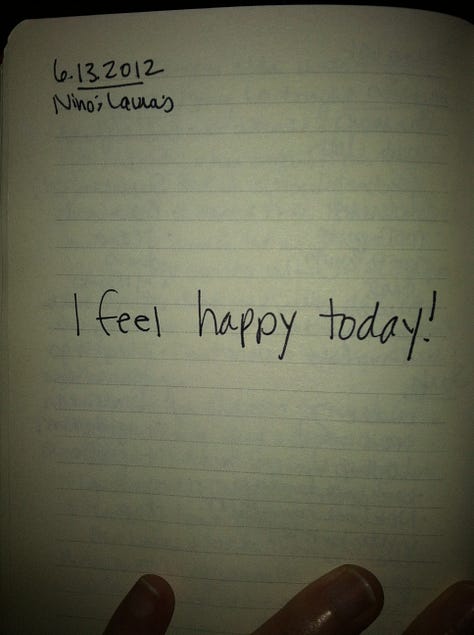 6.13.2012
Nino's Laura's
I feel happy today!